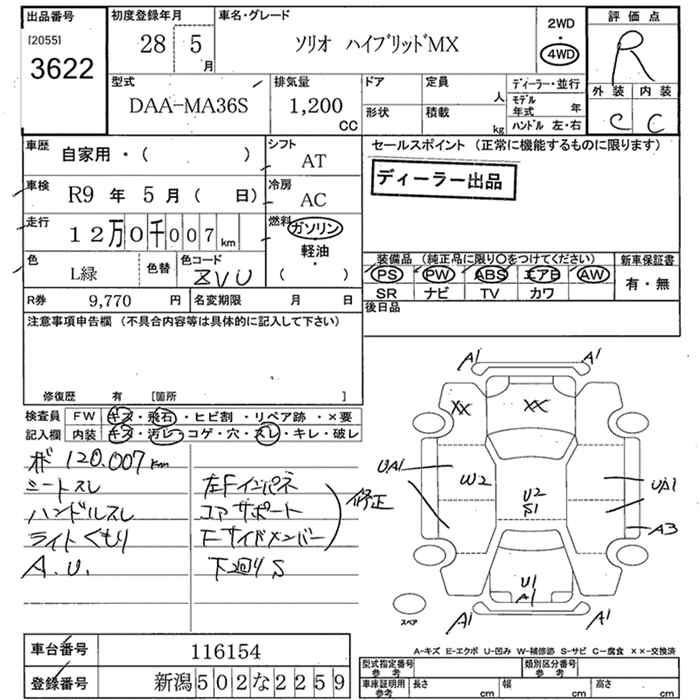 出品番号
[2055]
3622
初度登録年月
28 5 月
車名・グレード
ソリオ ハイブリッドMX
2WD
・
4WD
評価点
R
外装 内装
C C
型式
DAA-MA36S
排気量
1,200
CC
ドア 定員 人
形状 積載 kg
ディーラー・並行
モデル年式 年
ハンドル 左・右
車歴 自家用・( )
シフト AT
車検 R9 年 5 月 ( 日)
冷房 AC
走行 12万0千007km
燃料 ガソリン
・
軽油
( )
色 L緑
色替
色コード ZVU
R券 9,770 円
名変期限 月 日
セールスポイント (正常に機能するものに限ります)
ディーラー出品
装備品 (純正品に限り〇をつけてください)
PS PW ABS エアB AW
SR ナビ TV カワ
新車保証書
有・無
後日品
注意事項申告欄 (不具合内容等は具体的に記入して下さい)
修復歴 有 [箇所 ]
検査員 FW キズ・飛石・ヒビ割・リペア跡・×要
記入欄 内装 キズ・汚レ・コゲ・穴・スレ・キレ・破レ
120,007km
シートスレ
ハンドルスレ
ライトくもり
A.U.
左Fインパネ
コアサポート
Fサイドメンバー
修正
下廻りS
A1 A1
XX XX
UA1 W2 U2 S1 UA1
A3
U1
A1
A1 A1
スペア
A-キズ E-エクボ U-凹み W-補修跡 S-サビ C-腐食 ××-交換済
車台番号 116154
登録番号 新潟502な2259
型式指定番号
参考
類別区分番号
参考
車庫証明用
参考
長さ cm 幅 cm 高さ cm